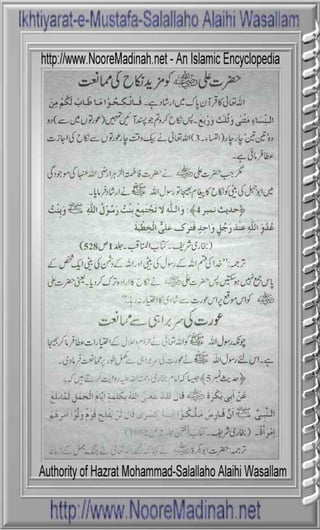 Ikhtiyarat-e-Mustafa-Salallaho Alaihi Wasallam
http://www.NooreMadinah.net - An Islamic Encyclopedia
حضرت علی ﷺ کو مزید نکاح کی ممانعت
اللہ تعالیٰ کا قرآن پاک میں ارشاد ہے۔ فَانْكِحُوْا مَا طَابَ لَكُمْ مِنَ
النِّسَاءِ مَثْنٰى وَثُلٰثَ وَرُبٰعَ۔ پس نکاح کرو تم جو پسند آئیں تمہیں (عورتوں میں سے) دو
دو تین تین چار چار (النساء۔3) اللہ تعالیٰ نے بیک وقت چار عورتوں سے نکاح کی اجازت
عطا فرمائی ہے۔
مگر جب حضرت علی نے حضرت فاطمۃ الزہرا رضی اللہ عنہا کی موجودگی
میں ابو جہل کی بیٹی کو نکاح کا پیغام بھیجا تو رسول اللہ ﷺ نے ارشاد فرمایا۔
(حدیث نمبر 4): وَاللّٰهِ لَا تَجْتَمِعُ بِنْتُ رَسُوْلِ اللّٰهِ ﷺ وَبِنْتُ
عَدُوِّ اللّٰهِ عِنْدَ رَجُلٍ وَاحِدٍ فَتَرَكَ عَلِيٌّ الْخِطْبَةَ
(بخاری شریف۔ کتاب المناقب۔ جلد 1 ص 528)
ترجمہ: "خدا کی قسم اللہ کے رسول کی بیٹی اور اللہ کے دشمن کی بیٹی ایک شخص کے
پاس جمع نہیں ہو سکتیں پس حضرت علی نے نکاح کا ارادہ ترک کر دیا۔ یعنی حضرت علی
کو اس موقع پر اس عورت سے شادی کا اختیار نہ رہا۔"
عورت کی سربراہی سے ممانعت
چونکہ رسول اللہ ﷺ کو اللہ تعالیٰ نے حرام و حلال کے اختیارات عطا فرما کر بھیجا
ہے۔ اس لئے رسول اللہ ﷺ نے عورت کی سربراہی سے
(حدیث نمبر 5)
عَنْ اَبِيْ بَكْرَةَ قَالَ لَقَدْ نَفَعَنِيَ اللّٰهُ بِكَلِمَةٍ اَيَّامَ الْجَمَلِ لَمَّا بَلَغَ
النَّبِيَّ ﷺ اَنَّ فَارِسَ مَلَّكُوْا ابْنَةَ كِسْرٰى قَالَ لَنْ يُّفْلِحَ قَوْمٌ وَلَّوْا اَمْرَهُمُ
امْرَاَةً۔ (بخاری شریف۔ کتاب الفتن جلد 2 ص
ترجمہ: حضرت ابو بکرہ
Authority of Hazrat Mohammad-Salallaho Alaihi Wasallam
http://www.NooreMadinah.net